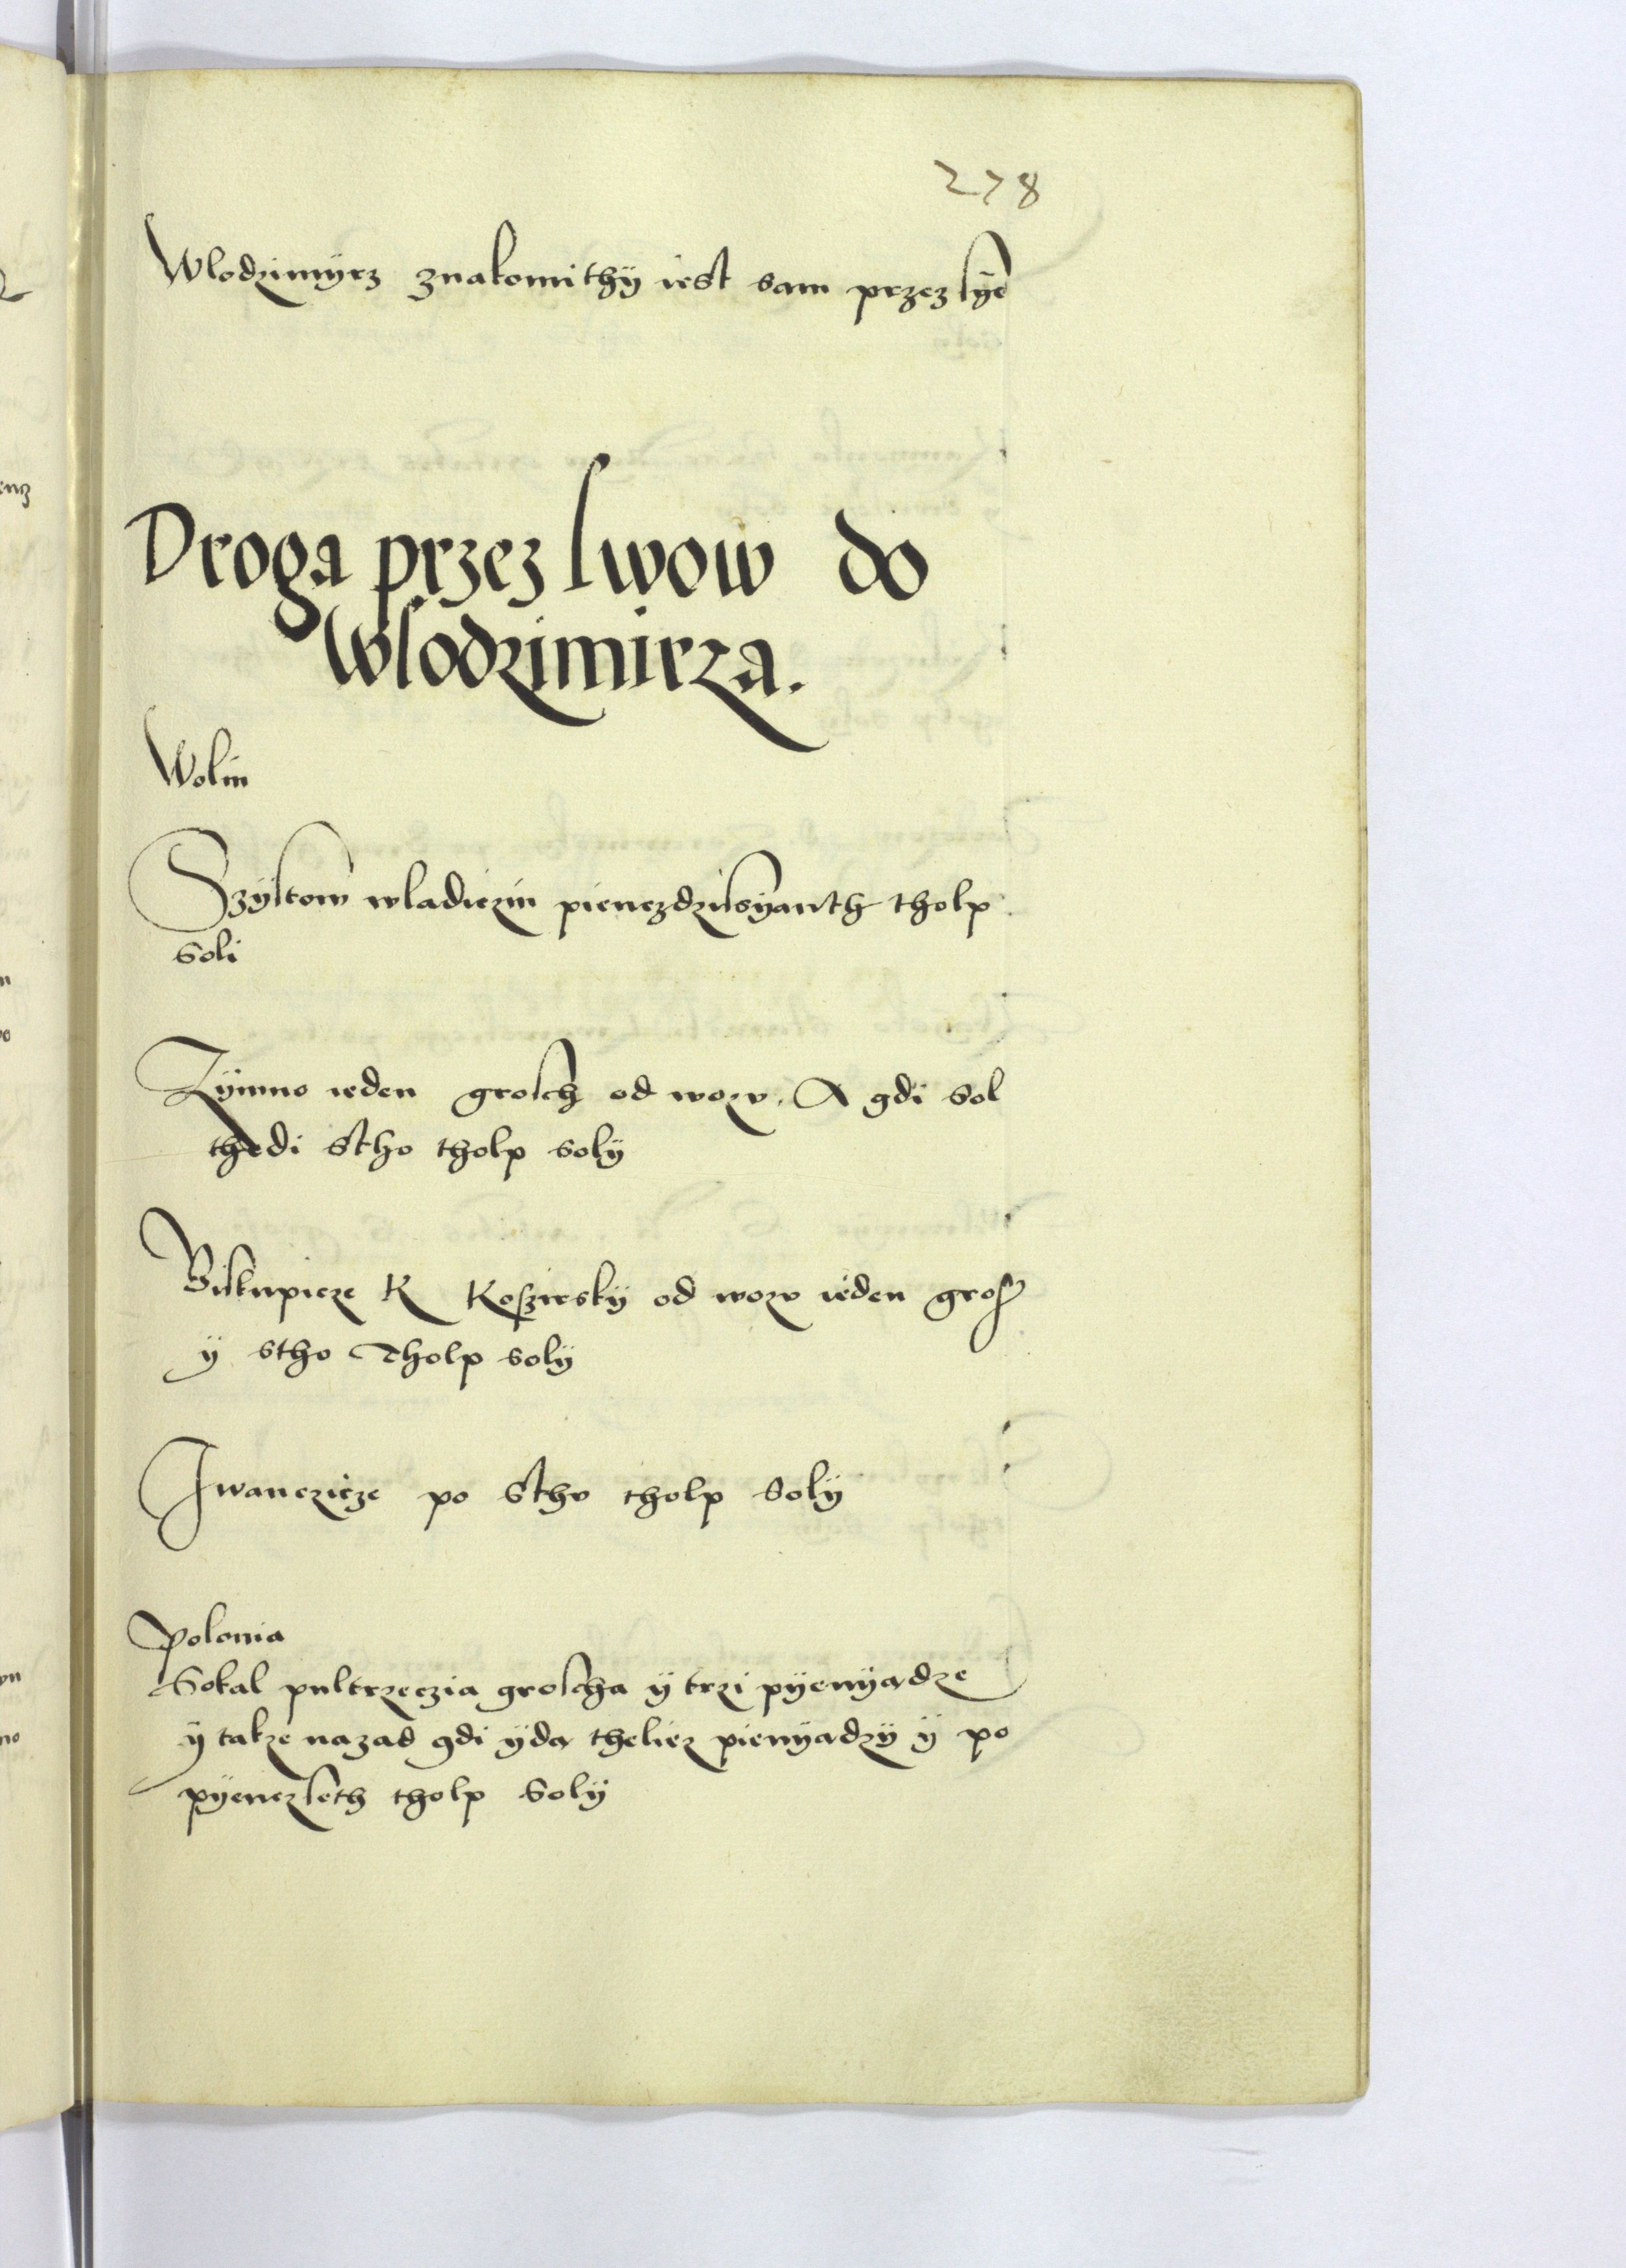 278
Wlodzimÿrz znakomithÿ iest sam przez sÿe
Droga przez lwow do
Wlodzimirza.
Wolin
Szÿstow wladiczin pienczdziesyanth tholp
soli
Zÿmno ieden grosch od wozv. A gdi sol
thedi stho tholp solÿ
Biskupicze K Koszirskÿ od wozv ieden grosz
ÿ stho tholp solÿ
Iwanczicze po sthv tholp solÿ
Polonia
Sokal pultrzeczia groscha ÿ trzi pÿenÿadze
ÿ takze nazad gdi ÿda theliez pienÿadzÿ ÿ po
pÿenczseth tholp solÿ